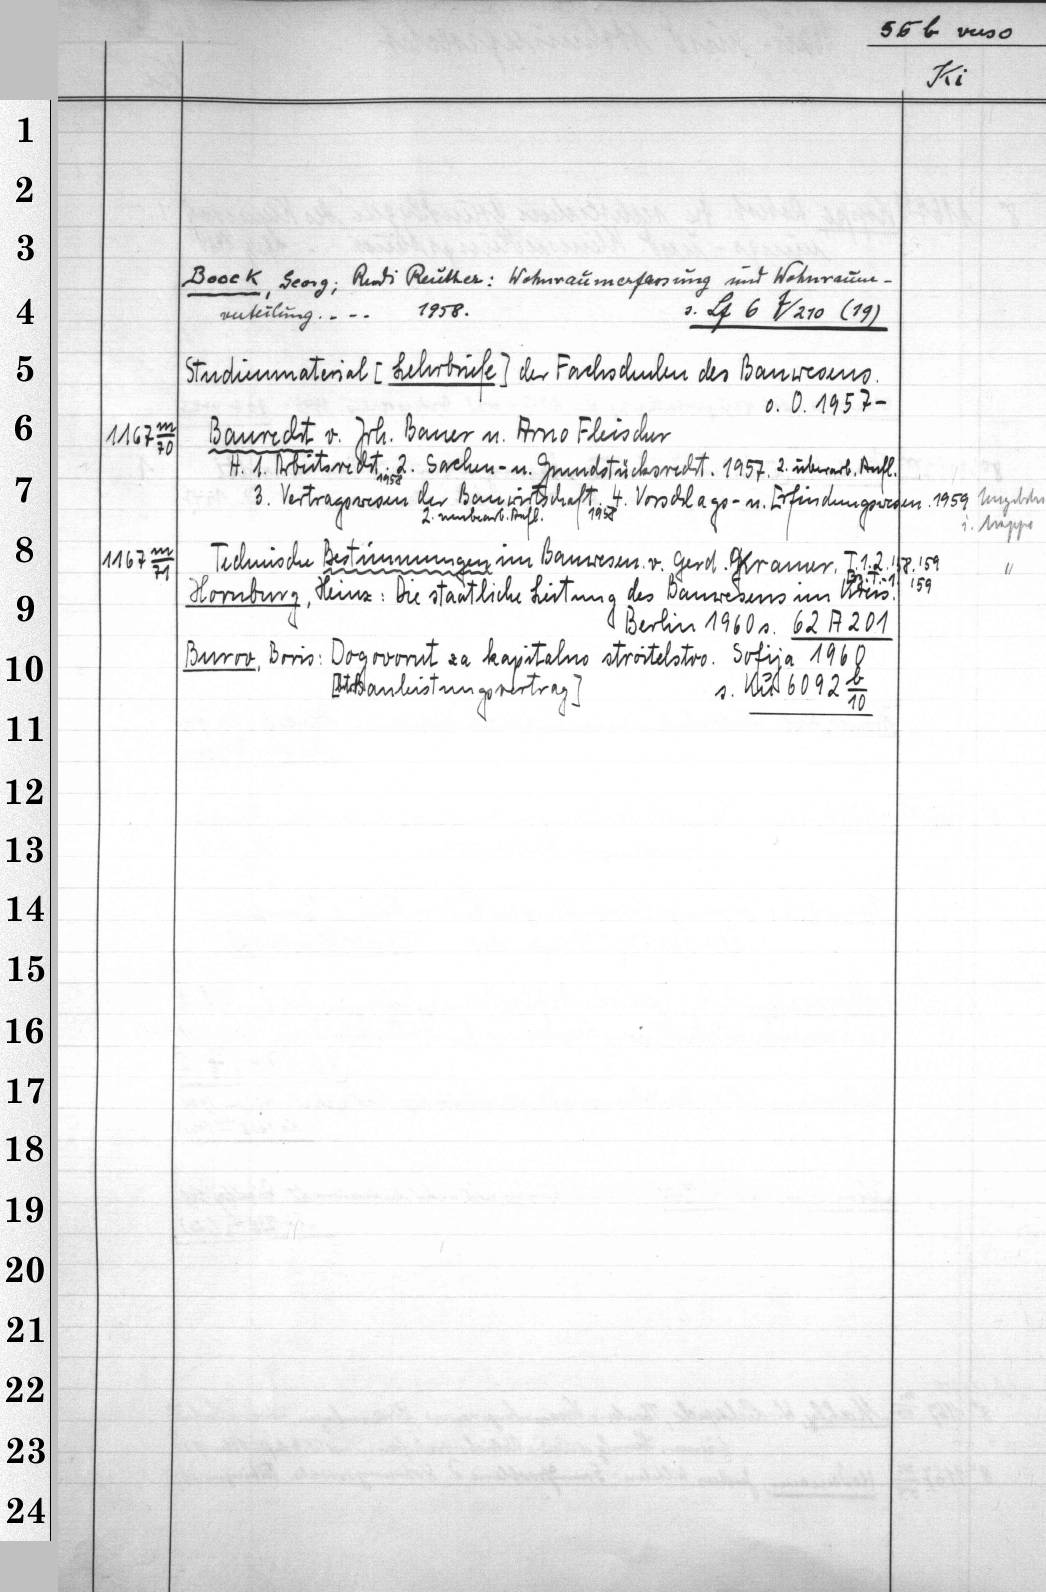 56 b verso
Ki
1
2
3
Boock, Georg; Rudi Reuther: Wohnraumerfassung und Wohnraum-
4 verteilung. - - - 1958. s. Lf 6 f/210 (19)
5 Studienmaterial [Lehrbriefe] der Fachschulen des Bauwesens.
o. O. 1957-
6 1167 m/70 Baurecht v. Joh. Bauer u. Arno Fleischer
H. 1. Arbeitsrecht. 1958 2. Sachen- u. Grundstücksrecht. 1957. 2. überarb. Aufl.
7 3. Vertragswesen der Bauwirtschaft. 4. Vorschlags- u. Erfindungswesen. 1959 Ungebunden
2. neubearb. Aufl. 1958 i. Mappe
8 1167 m/71 Technische Bestimmungen im Bauwesen. v. Gerd. Kramer. T. 1. 2. '58. '59 "
'159
9 Hornburg, Heinz: Die staatliche Leitung des Bauwesens im Kreis.
Berlin 1960 s. 62 A 201
10 Burov, Boris: Dogovorut za kapitalno stroitelstvo. Sofija 1960
[Bauleistungsvertrag] s. Kü 6092 b/10
11
12
13
14
15
16
17
18
19
20
21
22
23
24